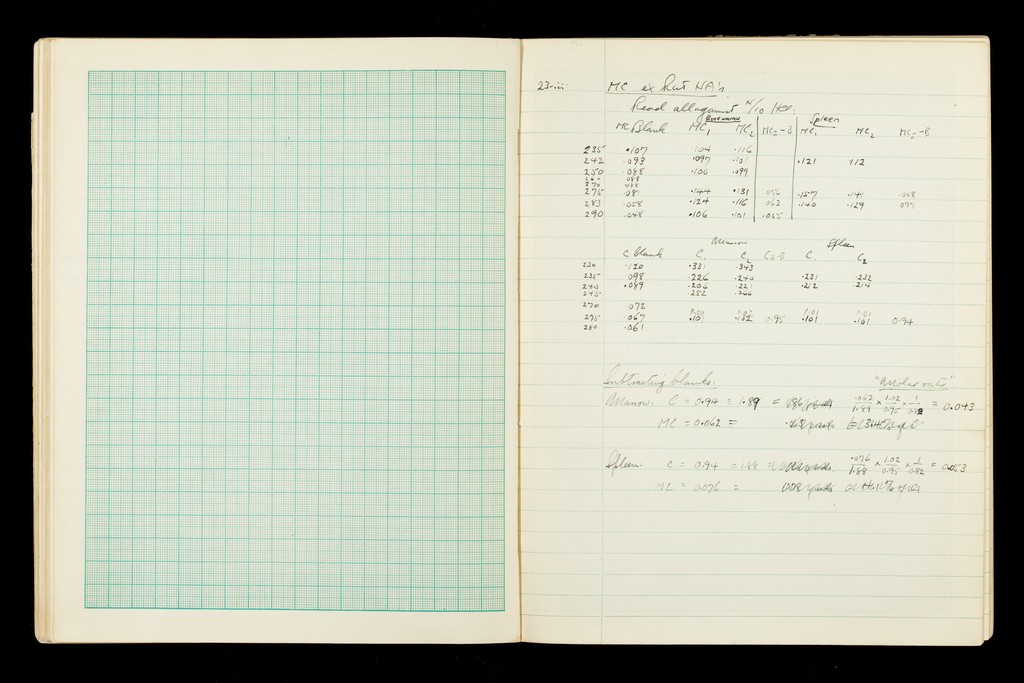 23-iii MC ex Rat NA's
Read all against N/10 HCl.
Bone marrow Spleen
MC Blank MC1 MC2 MC2-B MC1 MC2 MC2-B
235 .107 .104 .116
242 .093 .097 .101 .121 .112
250 .088 .100 .099
260 .088
270 .088
275 .081 .144 .131 .056 .157 .141 .068
283 .058 .124 .116 .062 .140 .129 .077
290 .048 .106 .101 .055
Marrow Spleen
C blank C1 C2 C2-B C1 C2
230 .120 .331 .343
235 .098 .226 .240 .231 .232
240 .089 .206 .221 .212 .214
245 .252 .266
270 .072
275 .067 .101 0.95 .101 .101 0.94
280 .061
Subtracting blanks: "Molar ratio"
Marrow. C = 0.94 = 1.89 = .062/1.89 × 1.02/0.95 × 1/0.82 = 0.043
MC = 0.062 =
Spleen. C = 0.94 = 1.88 .076/1.88 × 1.02/0.95 × 1/0.82 = 0.053
MC = 0.076 =